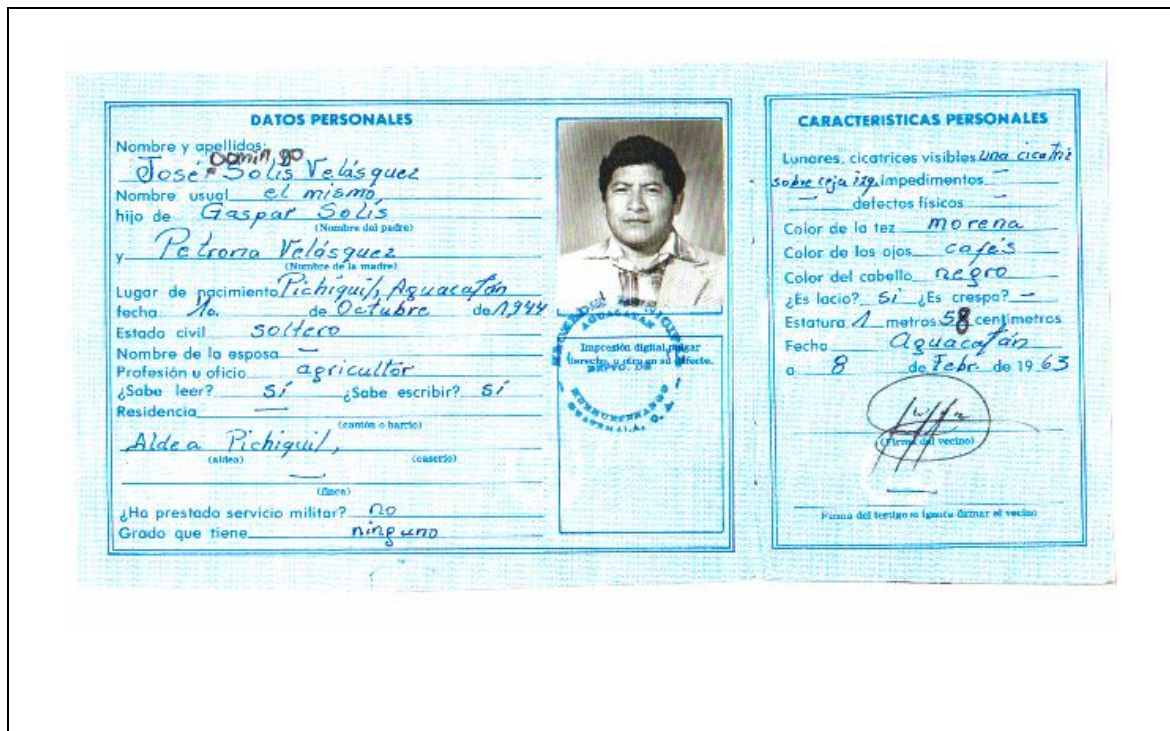 DATOS PERSONALES
Nombre y apellidos:
Domingo
José Solís Velásquez
Nombre usual el mismo
hijo de Gaspar Solís
(Nombre del padre)
y Petrona Velásquez
(Nombre de la madre)
Lugar de nacimiento Pichiquil, Aguacatán
fecha 1o. de Octubre de 1,944
Estado civil soltero
Nombre de la esposa —
Profesión u oficio agricultor
¿Sabe leer? sí ¿Sabe escribir? sí
Residencia —
(cantón o barrio)
Aldea Pichiquil,
(aldea) (caserío)
—
(finca)
¿Ha prestado servicio militar? no
Grado que tiene ninguno
AGUACATAN
DEPTO. DE
HUEHUETENANGO
GUATEMALA, C. A.
Impresión digital pulgar
derecho, u otro en su defecto.
CARACTERISTICAS PERSONALES
Lunares, cicatrices visibles una cicatriz
sobre ceja izq. impedimentos —
— defectos físicos —
Color de la tez morena
Color de los ojos cafés
Color del cabello negro
¿Es lacio? Sí ¿Es crespo? —
Estatura 1 metros 58 centímetros
Fecha Aguacatán
a 8 de Febr. de 1963
(Firma del vecino)
—
Firma del testigo si ignora firmar el vecino